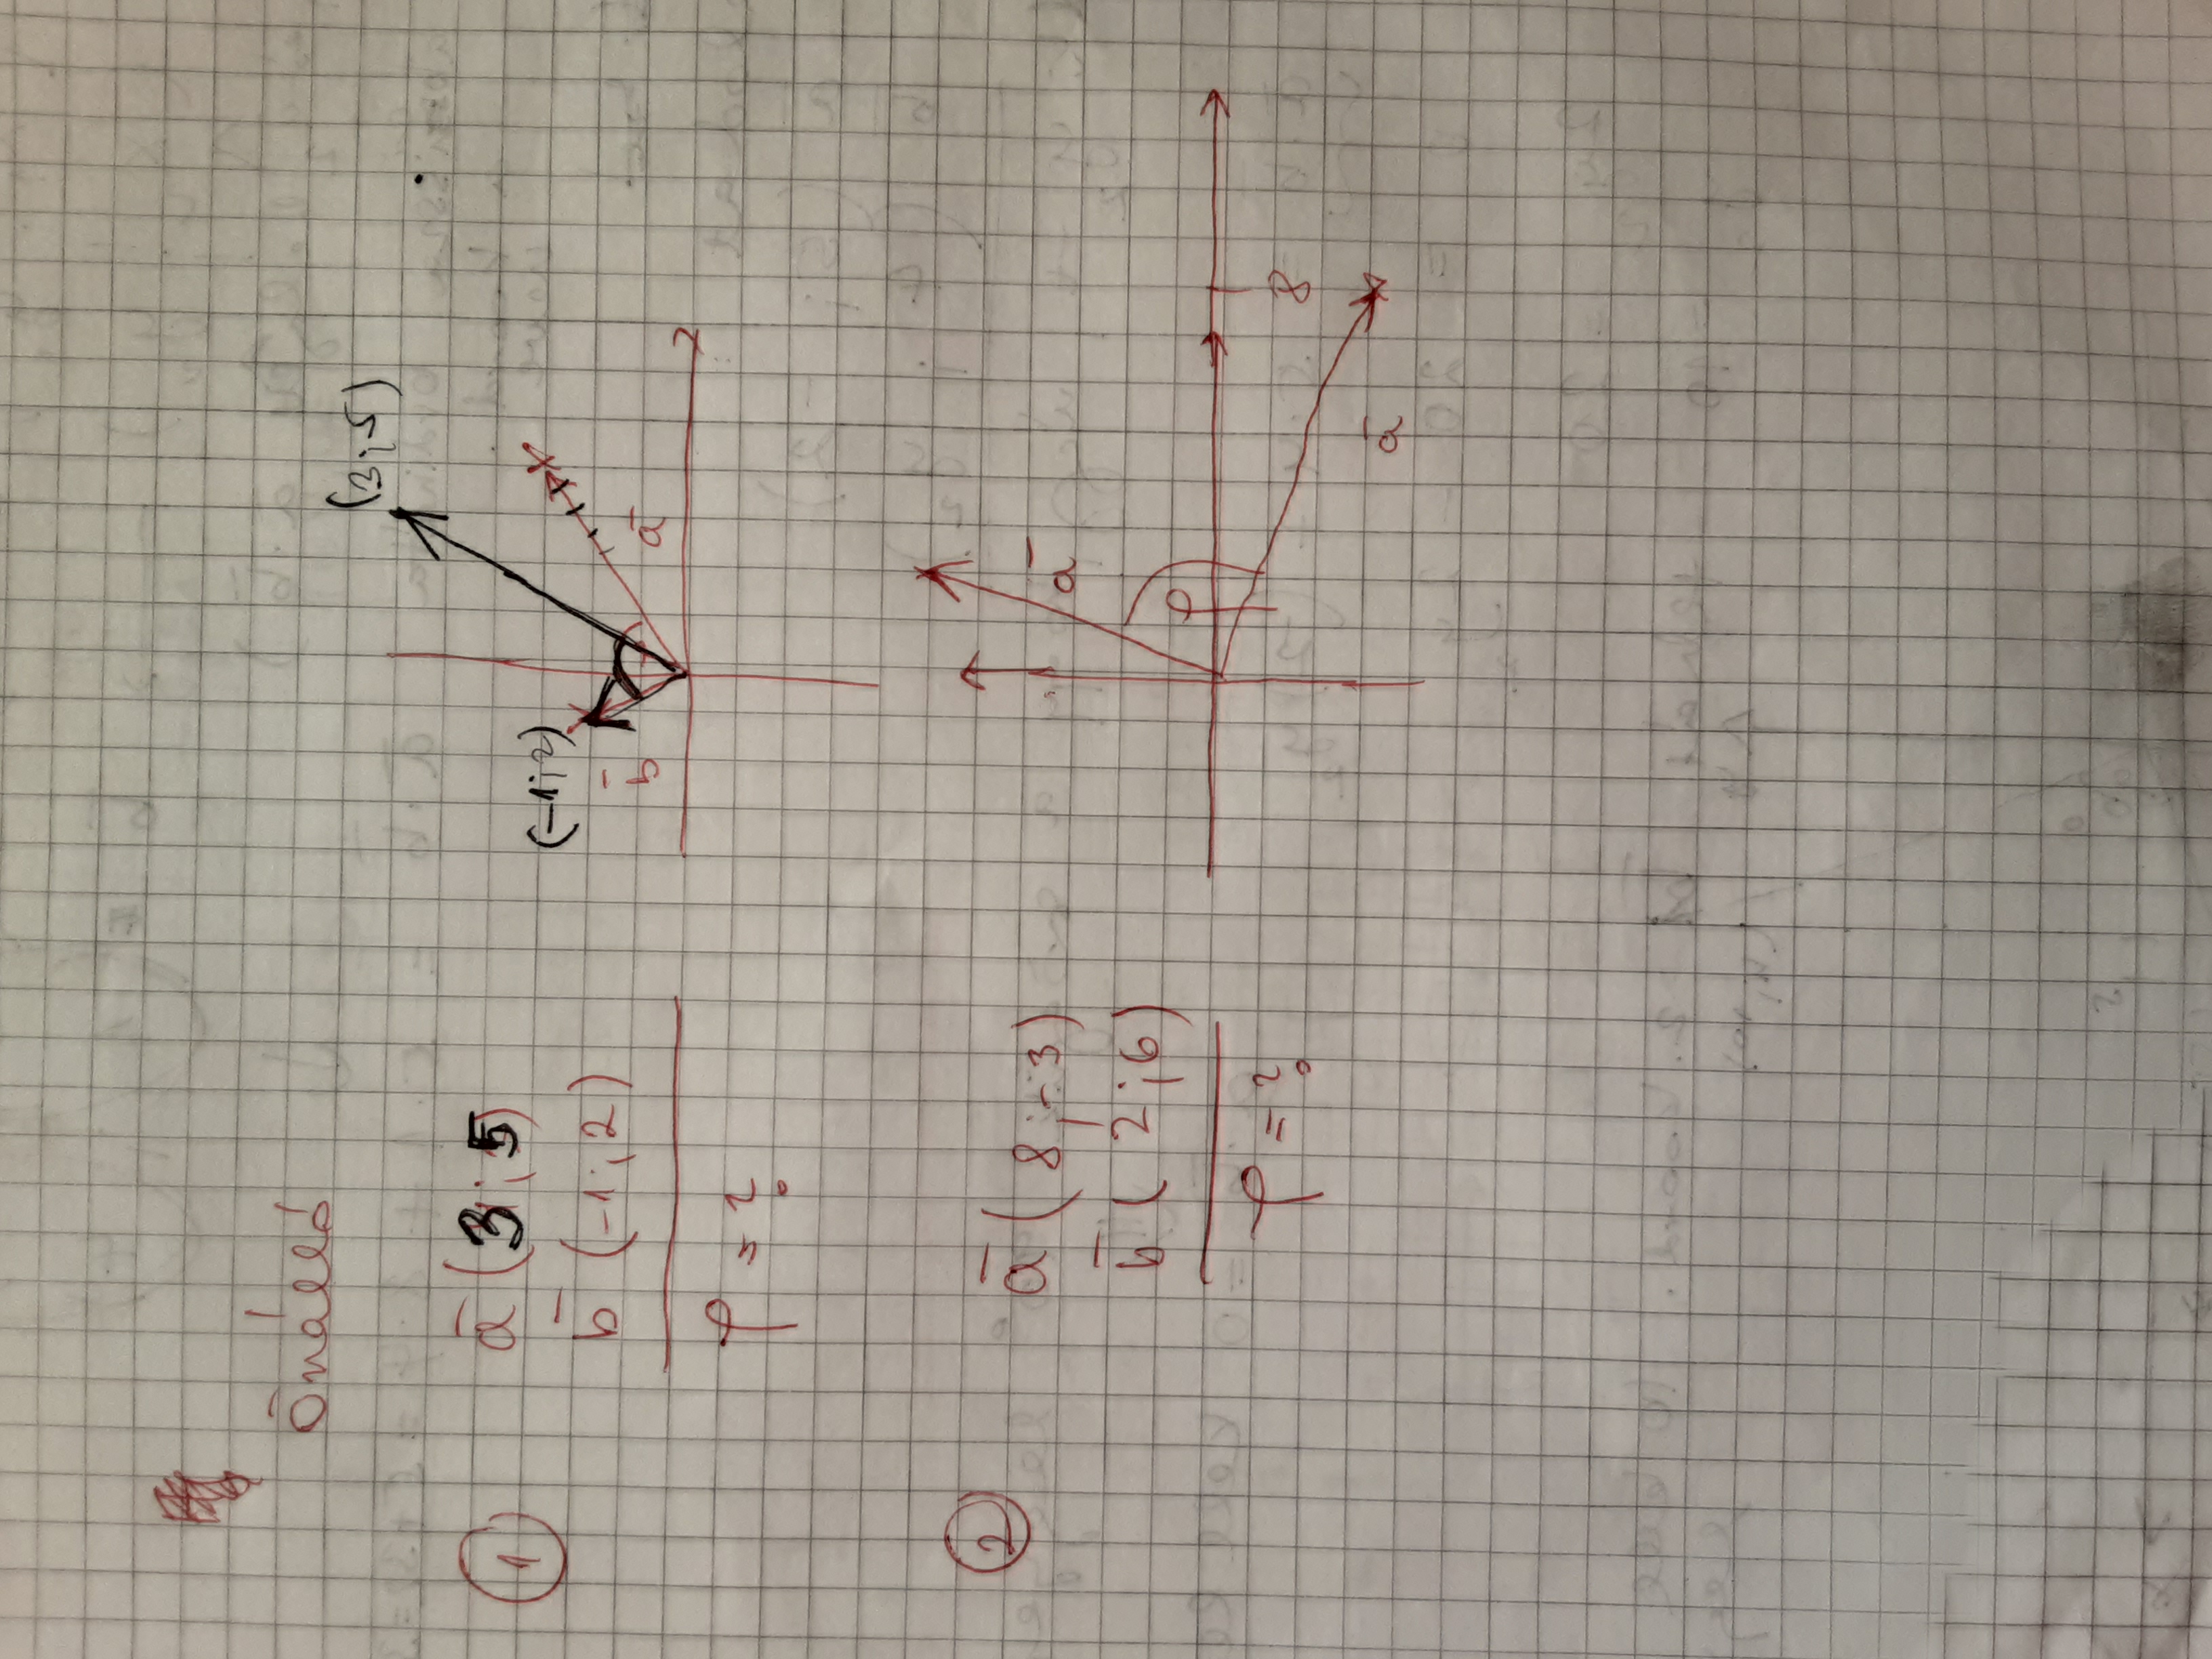 Önálló
①
a̅ (3;5)
b̅ (-1;2)
φ = ?
(3;5)
(-1;2)
a̅
b̅
②
a̅ (8;-3)
b̅ (2;6)
φ = ?
a̅
φ
8
a̅